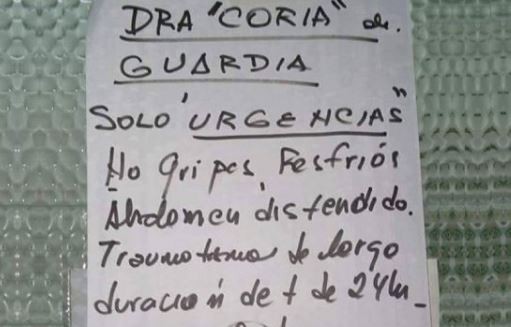 DRA "CORIA" de.
GUARDIA
SOLO "URGENCIAS"
No Gripes, Resfriós
Abdomen distendido.
Traumatismo de largo
duración de + de 24hs_